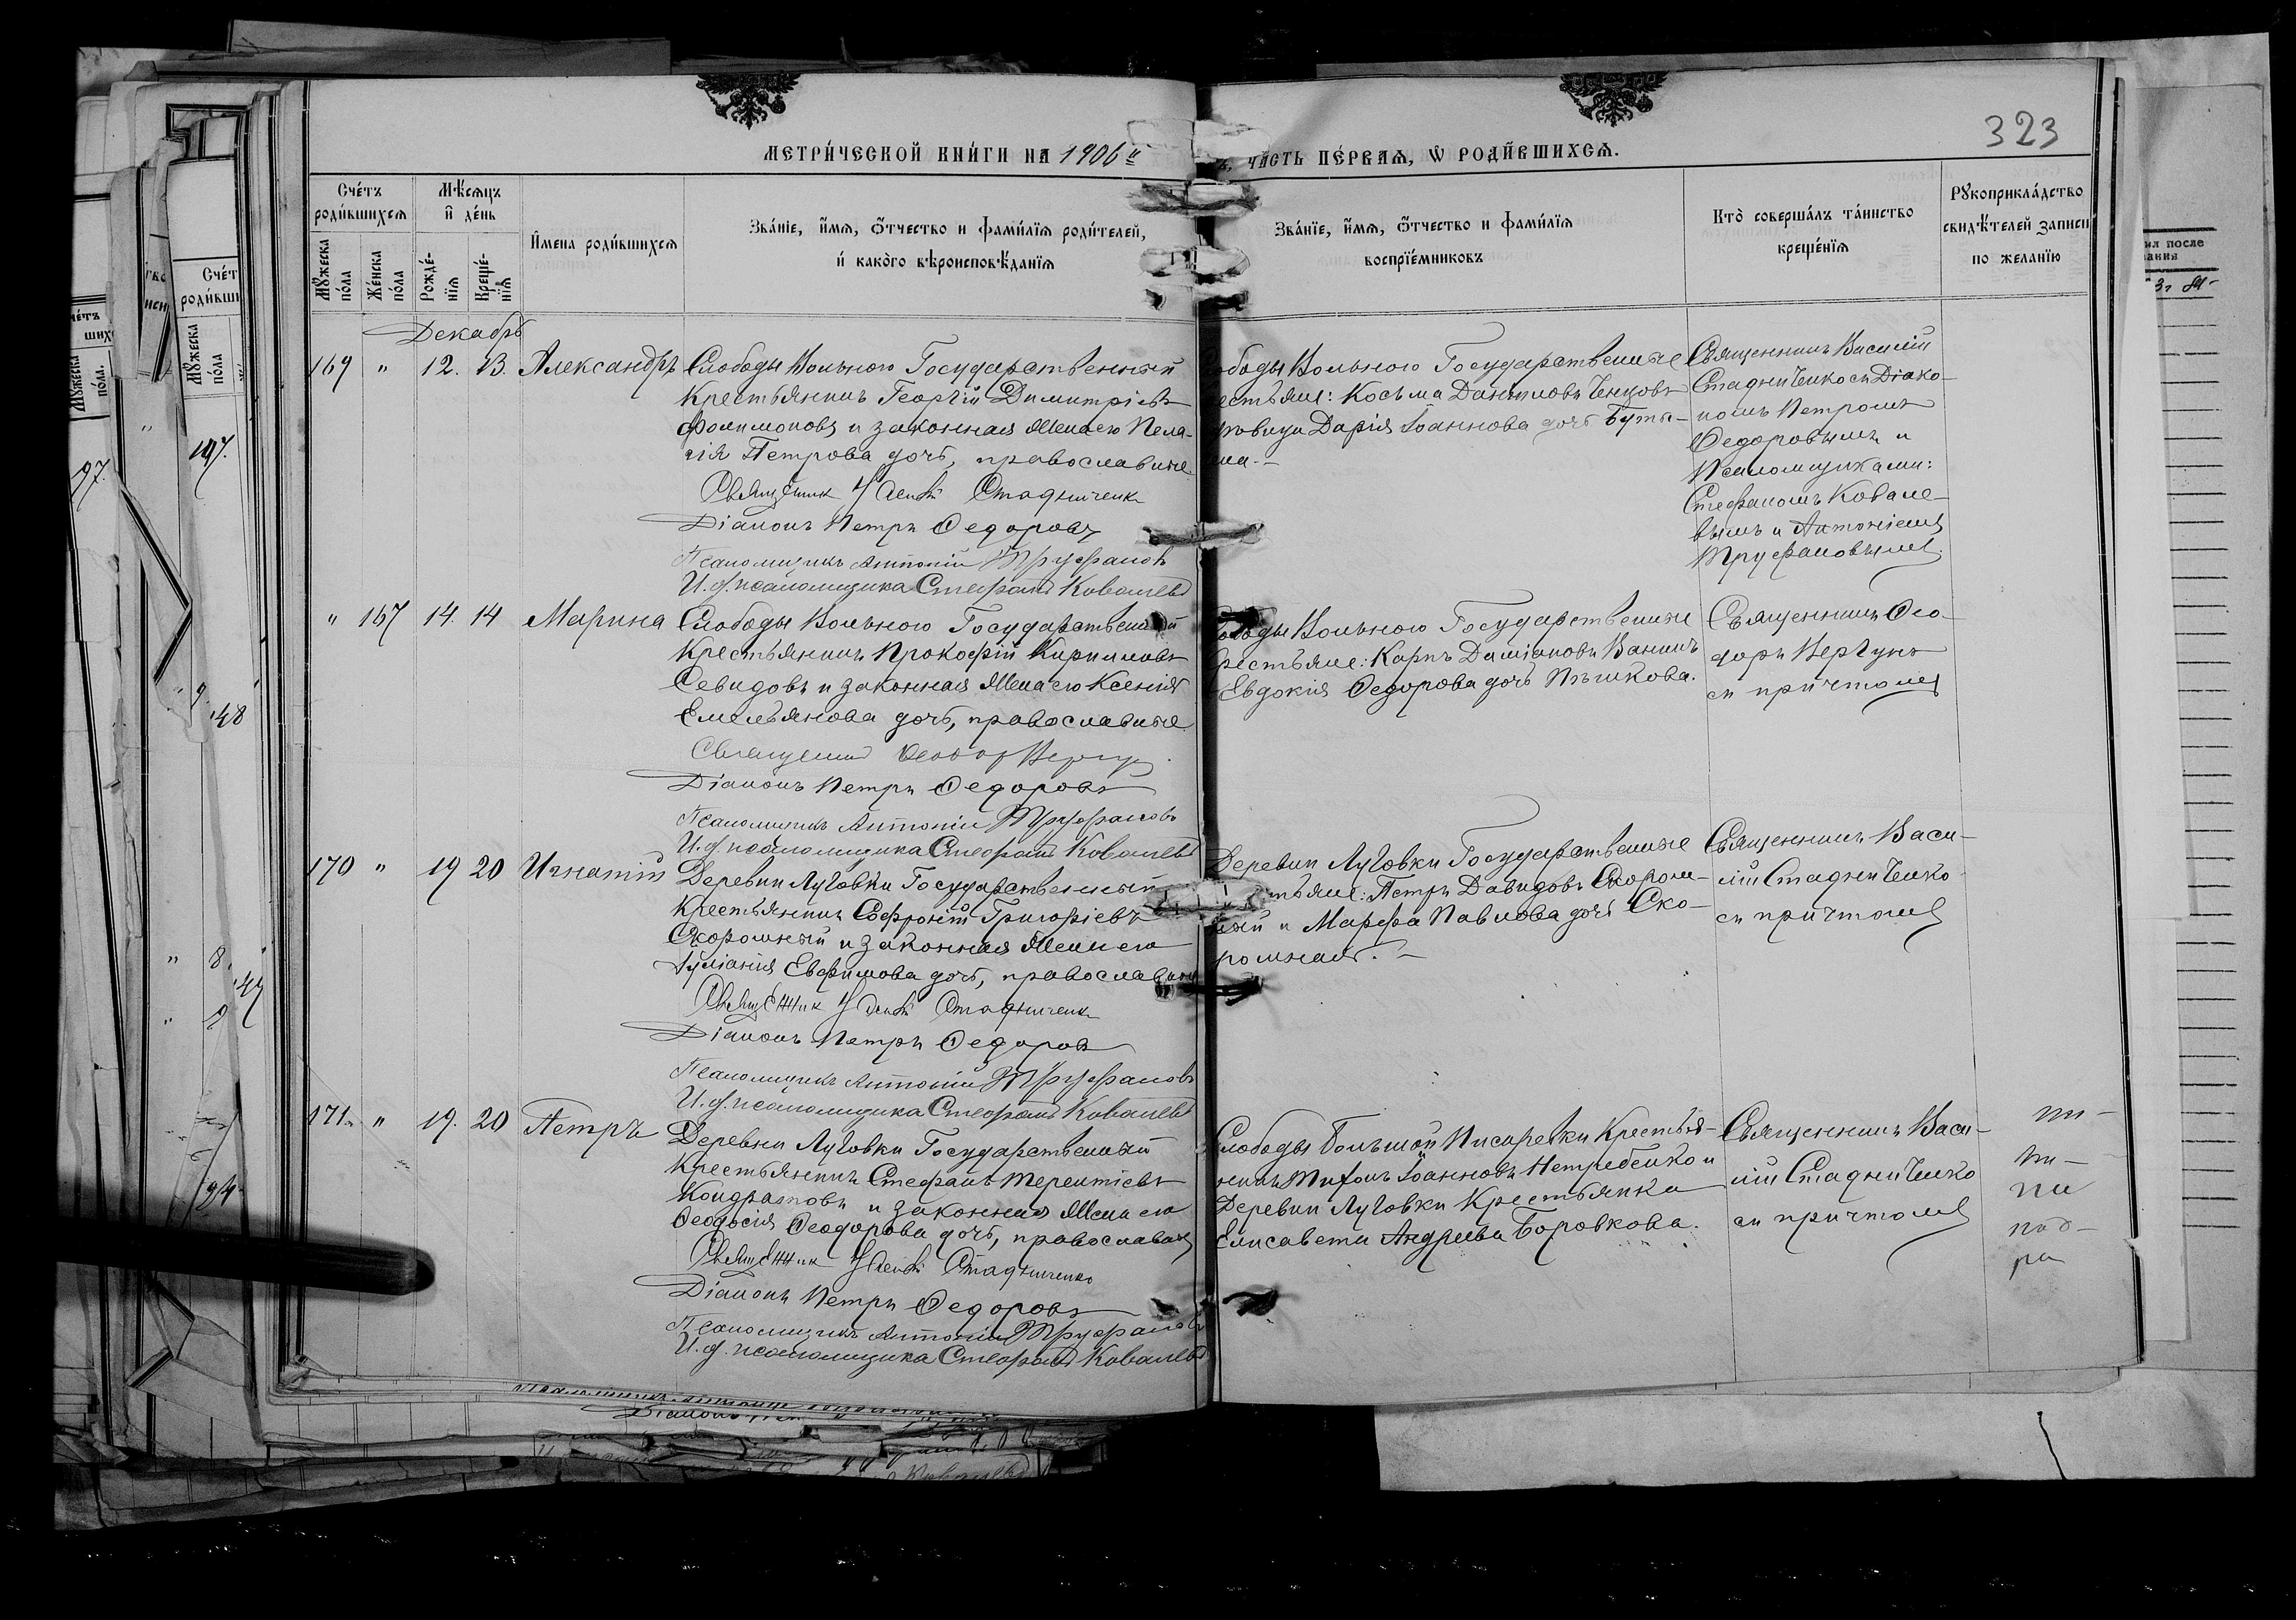 323
МЕТРИ́ЧЕСКОЙ КНИ́ГИ НА 1906 й
ЧАСТЬ ПЕ́РВАЯ, Ѡ РОДИ́ВШИХСЯ.
Счётъ родившихся
Мужеска пола
Женска пола
Мѣсяцъ и день
Рожденія
Крещенія
Имена родившихся
Званіе, имя, отчество и фамилія родителей,
и какого вѣроисповѣданія
Званіе, имя, отчество и фамилія
воспріемниковъ
Кто совершалъ таинство
крещенія
Рукоприкладство
свидѣтелей записи
по желанію
Декабрь
169 " 12. 13. Александръ
Слободы Вольного Государственный
крестьянинъ Георгій Димитріевъ
Филимоновъ и законная жена его Пела-
гія Петрова дочь, православные
Священник Стадниченк
Діаконъ Петръ Ѳедоровъ
Псаломщикъ Антоній Труфановъ
И.ф. псаломщика Стефанъ Ковалевъ
ободы Вольного Государственные
естьяне: Косьма Даниловъ Ченцовъ
Дарія Іоаннова дочь Буты-
Священникъ Василій
Стадниченко съ Діако-
номъ Петромъ
Ѳедоровымъ и
Псаломщиками:
Стефаномъ Ковале-
вымъ и Антоніемъ
Труфановымъ.
" 167 14. 14 Марина
Слободы Вольного Государственный
крестьянинъ Прокофій Кирилловъ
Севидовъ и законная жена его Ксенія
Емельянова дочь, православные
Священникъ Ѳеодоръ Вергунъ
Діаконъ Петръ Ѳедоровъ
Псаломщикъ Антоній Труфановъ
И.ф. псаломщика Стефанъ Ковалевъ
ободы Вольного Государственные
рестьяне: Карпъ Даміановъ Ванинъ
Евдокія Ѳедорова дочь Пѣшкова.
Священникъ Ѳео-
доръ Вергунъ
съ причтомъ
170 " 19 20 Игнатій
Деревни Луговки Государственный
крестьянинъ Софроній Григоріевъ
Скоромный и законная жена его
Іуліанія Евфимова дочь, православные
Священник Стадниченк
Діаконъ Петръ Ѳедоровъ
Псаломщикъ Антоній Труфановъ
И.ф. псаломщика Стефанъ Ковалевъ
Деревни Луговки Государственные
стьяне: Петръ Давидовъ Скором-
ный и Марфа Павлова дочь Ско-
ромная. -
Священникъ Васи-
лій Стадниченко
съ причтомъ
171. " 19. 20 Петръ
Деревни Луговки Государственный
крестьянинъ Стефанъ Терентіевъ
Кондратовъ и законная жена его
Ѳеодосія Ѳеодорова дочь, православные
Священник Стадниченко
Діаконъ Петръ Ѳедоровъ
Псаломщикъ Антоній Труфановъ
И.ф. псаломщика Стефанъ Ковалевъ
Слободы Большой Писаревки Крестья-
нинъ Тихонъ Іоанновъ Нетребенко и
Деревни Луговки Крестьянка
Елисавета Андреева Боровкова.
Священникъ Васи-
лій Стадниченко
съ причтомъ